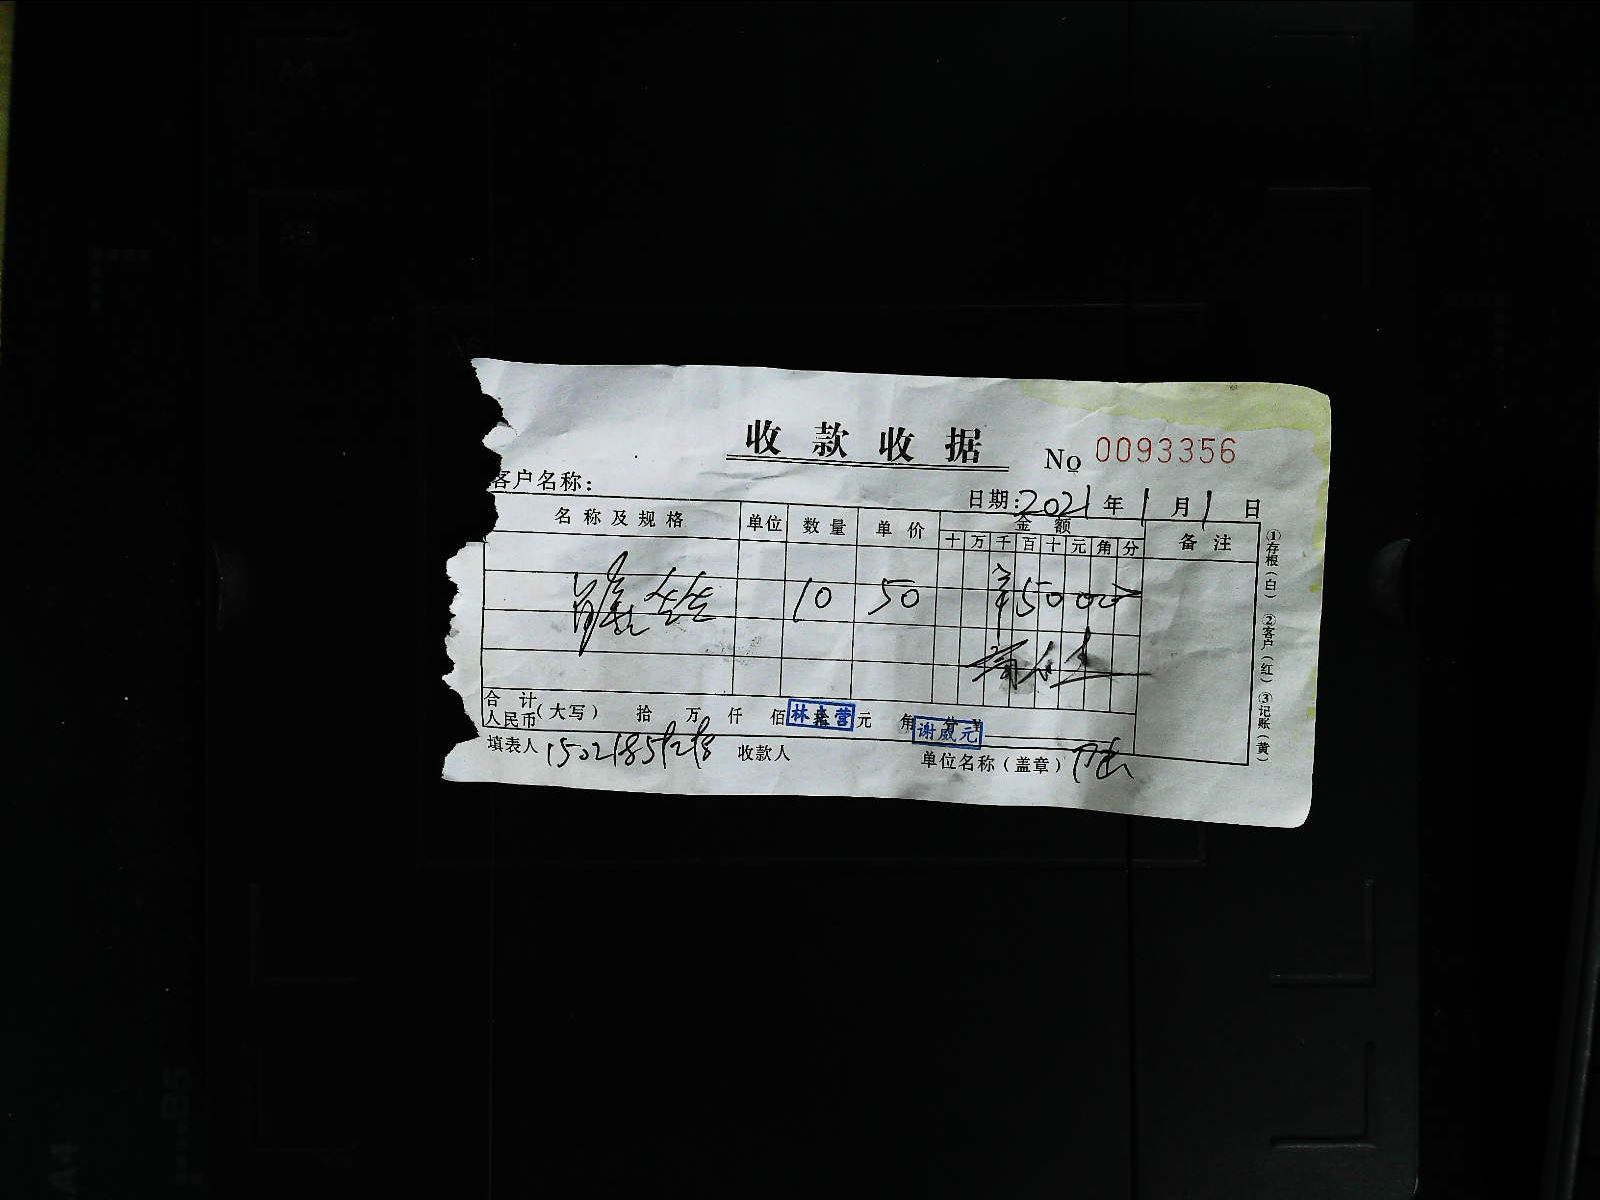 收款收据 No 0093356
客户名称:
日期: 2021 年 1 月 1 日
名称及规格 单位 数量 单价 金额 备注
十 万 千 百 十 元 角 分
10 50 ¥50000
合计
人民币 (大写) 拾 万 仟 佰 元 角
填表人 收款人 单位名称 (盖章)
①存根(白) ②客户(红) ③记账(黄)